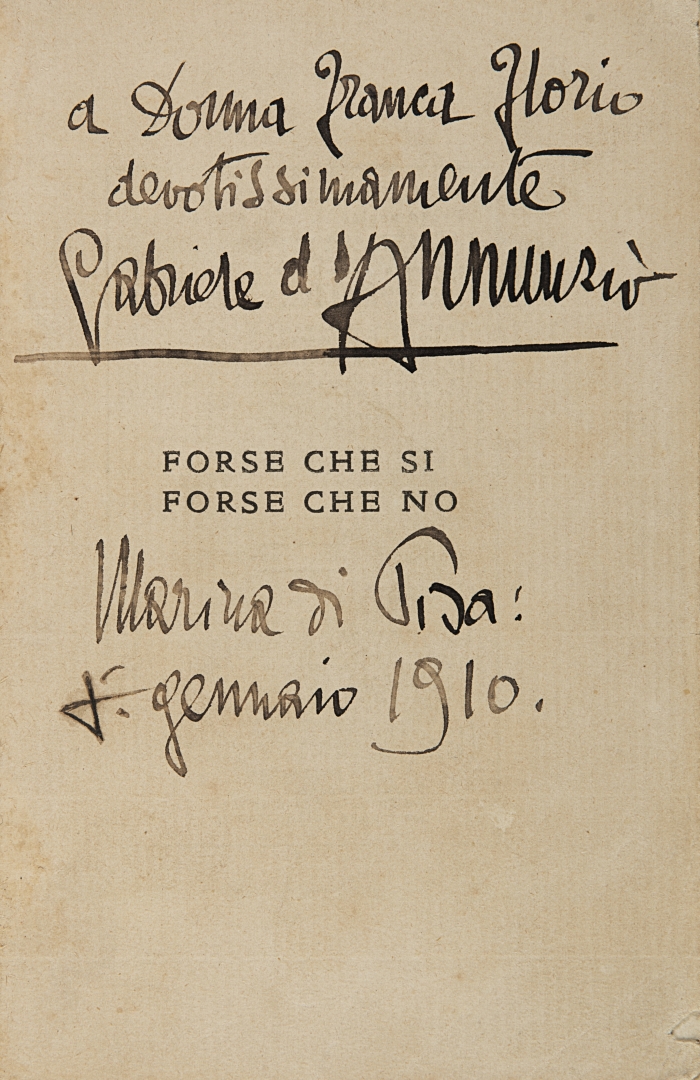 a Donna Franca Florio
devotissimamente
Gabriele d'Annunzio
FORSE CHE SI
FORSE CHE NO
Marina di Pisa:
gennaio 1910.